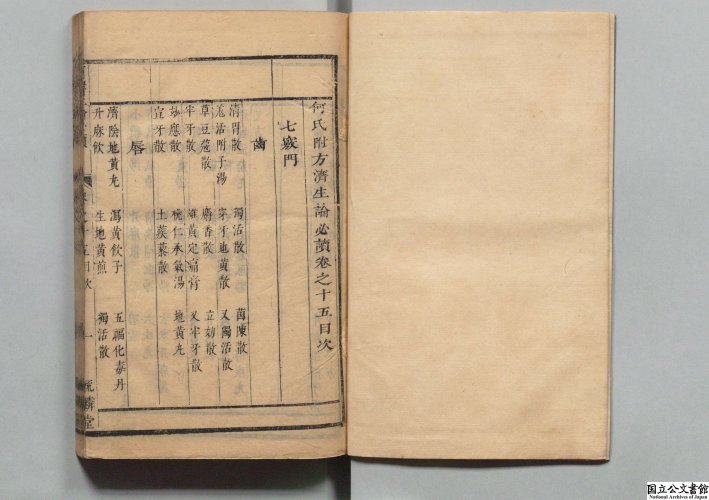 何氏附方濟生論必讀卷之十五目次
七竅門
齒
清胃散 獨活散 茵陳散
羗活附子湯 牢牙地黃散 又獨活散
草豆蔻散 麝香散 立効散
牢牙散 雄黃定痛膏 又牢牙散
刼應散 桃仁承氣湯 地黃丸
宣牙散 土蒺藜散
唇
濟陰地黃丸 瀉黃飲子 五福化毒丹
升麻飲 生地黃煎 獨活散
卷之十五目次 一
堂
国立公文書館
National Archives of Japan